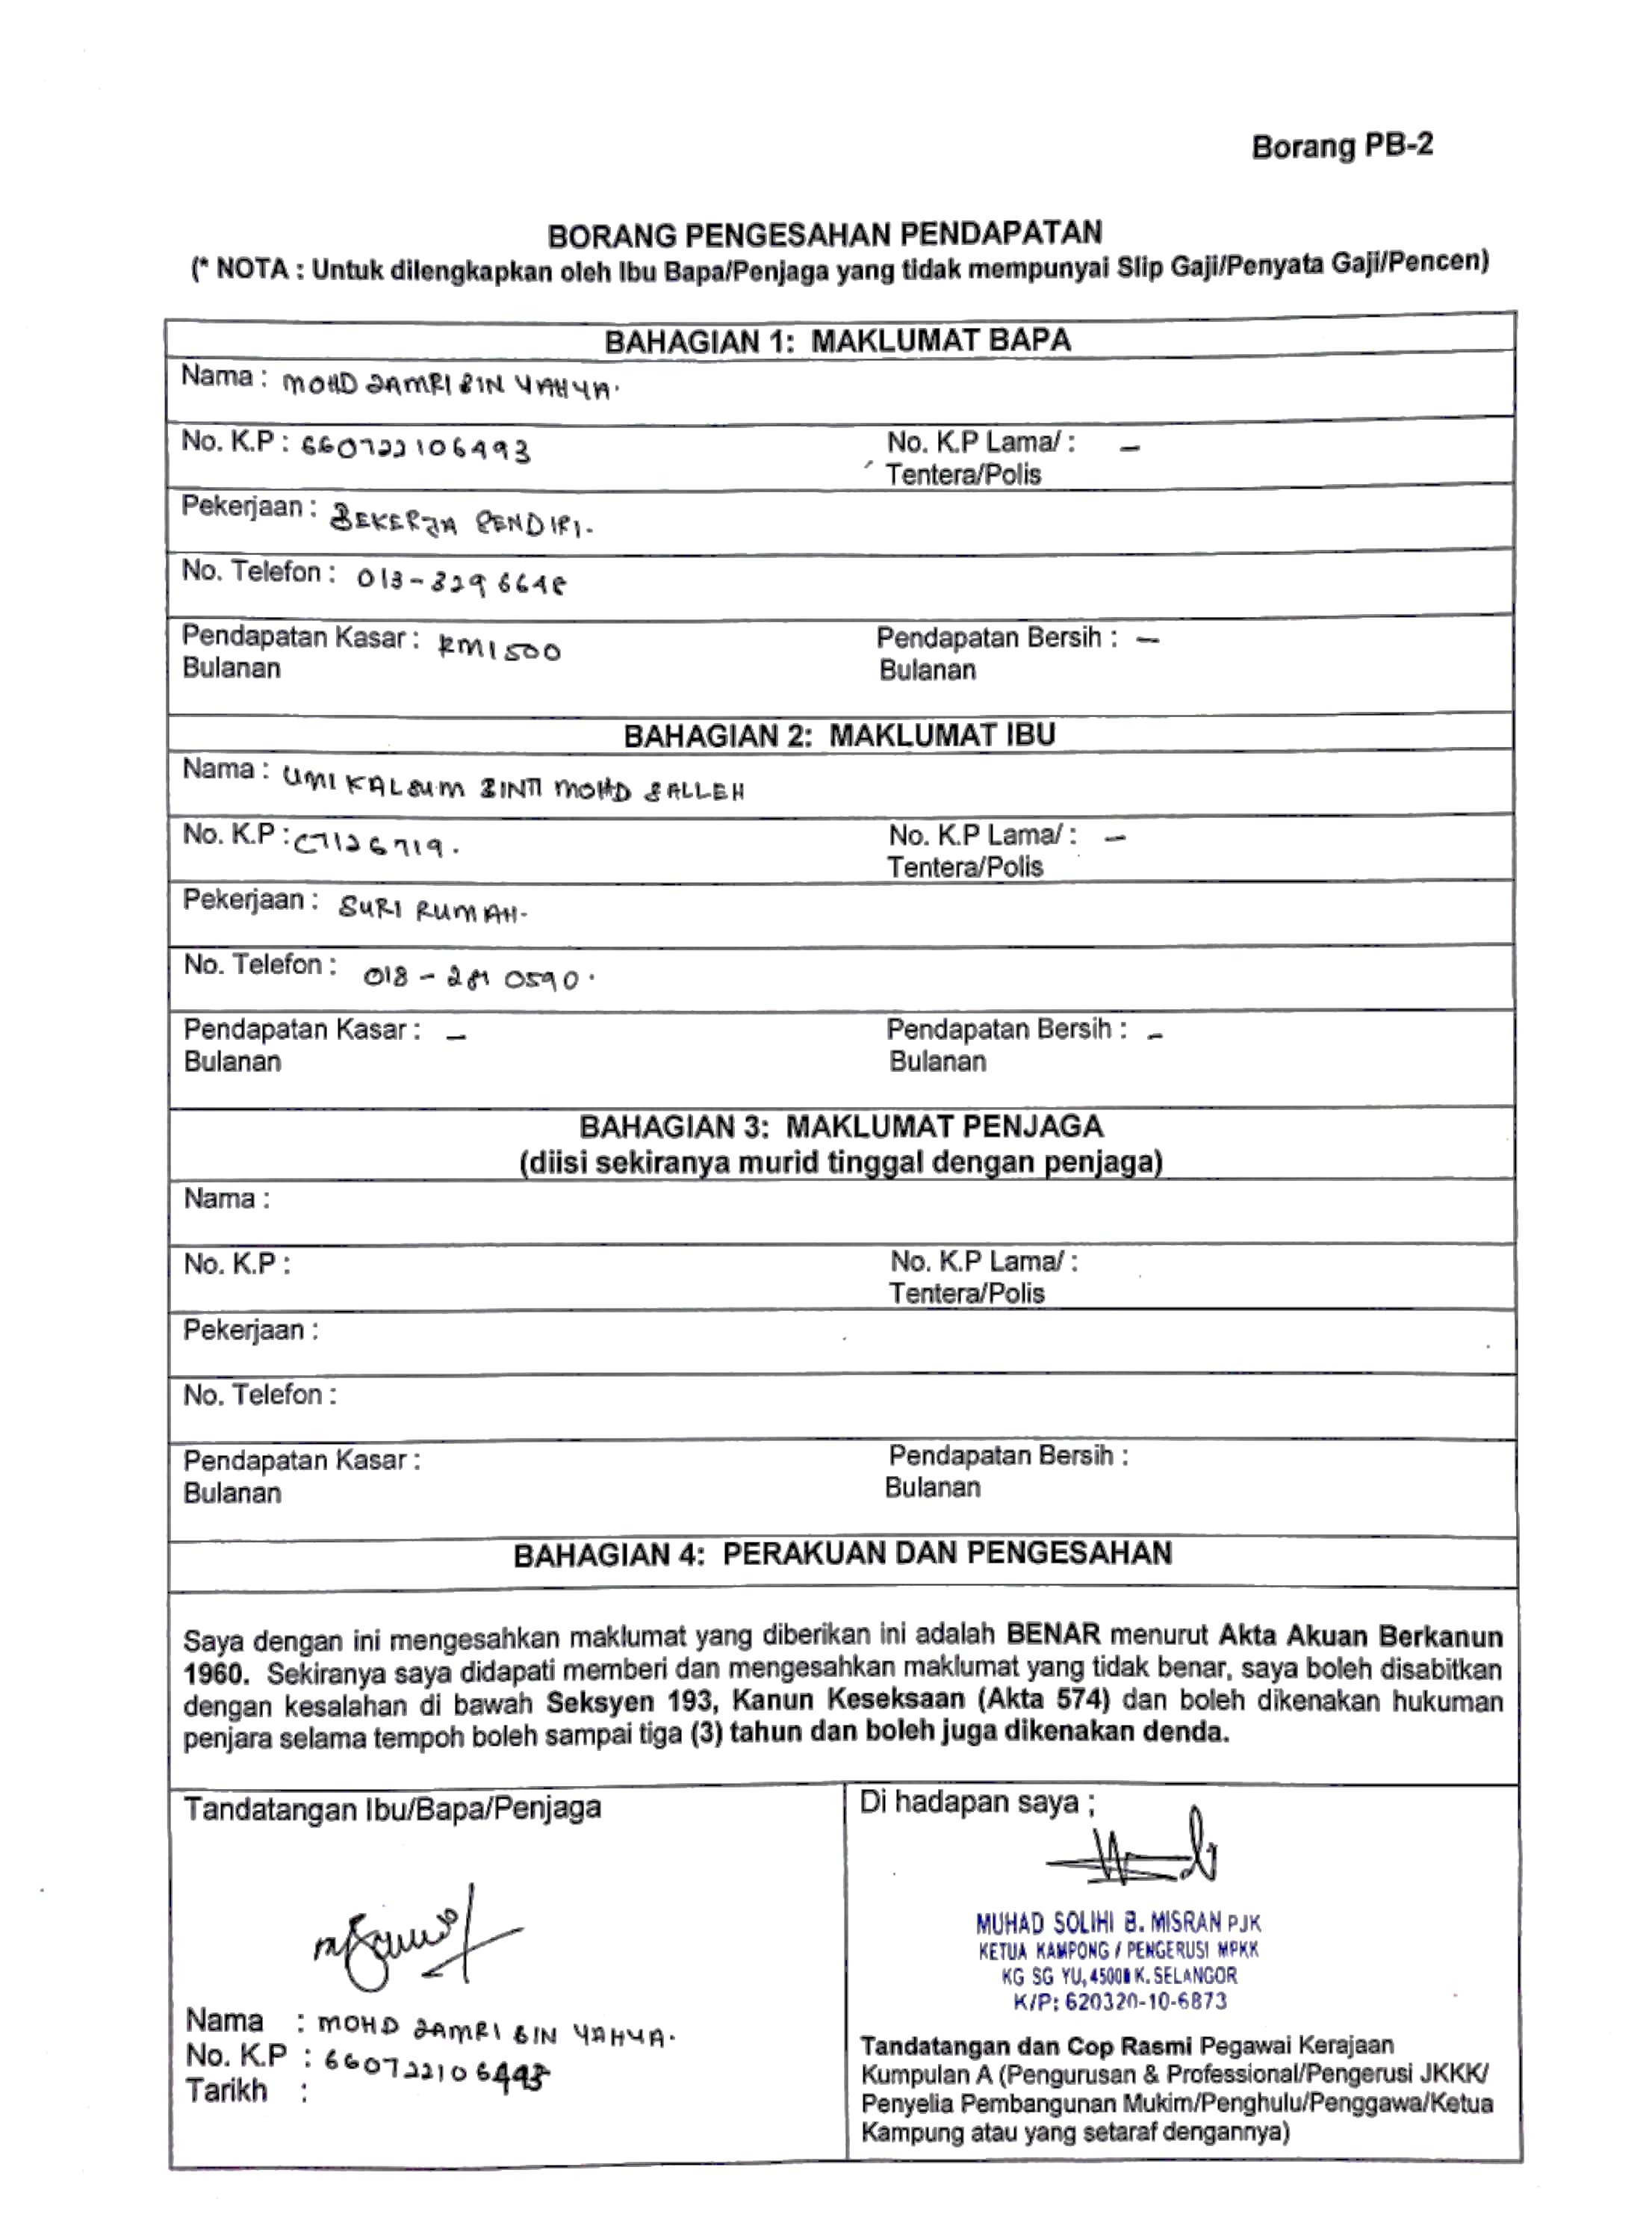 Borang PB-2
BORANG PENGESAHAN PENDAPATAN
(* NOTA : Untuk dilengkapkan oleh Ibu Bapa/Penjaga yang tidak mempunyai Slip Gaji/Penyata Gaji/Pencen)
BAHAGIAN 1: MAKLUMAT BAPA
Nama : MOHD JAMRI BIN YAHYA.
No. K.P : 660722106493 No. K.P Lama/ : –
Tentera/Polis
Pekerjaan : BEKERJA SENDIRI.
No. Telefon : 013-329 6648
Pendapatan Kasar : RM1500 Pendapatan Bersih : –
Bulanan Bulanan
BAHAGIAN 2: MAKLUMAT IBU
Nama : UMI KALSUM BINTI MOHD SALLEH
No. K.P : C7126719. No. K.P Lama/ : –
Tentera/Polis
Pekerjaan : SURI RUMAH.
No. Telefon : 018 - 0590.
Pendapatan Kasar : – Pendapatan Bersih : –
Bulanan Bulanan
BAHAGIAN 3: MAKLUMAT PENJAGA
(diisi sekiranya murid tinggal dengan penjaga)
Nama :
No. K.P : No. K.P Lama/ :
Tentera/Polis
Pekerjaan :
No. Telefon :
Pendapatan Kasar : Pendapatan Bersih :
Bulanan Bulanan
BAHAGIAN 4: PERAKUAN DAN PENGESAHAN
Saya dengan ini mengesahkan maklumat yang diberikan ini adalah BENAR menurut Akta Akuan Berkanun
1960. Sekiranya saya didapati memberi dan mengesahkan maklumat yang tidak benar, saya boleh disabitkan
dengan kesalahan di bawah Seksyen 193, Kanun Keseksaan (Akta 574) dan boleh dikenakan hukuman
penjara selama tempoh boleh sampai tiga (3) tahun dan boleh juga dikenakan denda.
Tandatangan Ibu/Bapa/Penjaga
Nama : MOHD JAMRI BIN YAHYA.
No. K.P : 660722106493
Tarikh :
Di hadapan saya ;
MUHAD SOLIHI B. MISRAN PJK
KETUA KAMPONG / PENGERUSI MPKK
KG SG YU, 45000 K. SELANGOR
K/P: 620320-10-6873
Tandatangan dan Cop Rasmi Pegawai Kerajaan
Kumpulan A (Pengurusan & Professional/Pengerusi JKKK/
Penyelia Pembangunan Mukim/Penghulu/Penggawa/Ketua
Kampung atau yang setaraf dengannya)